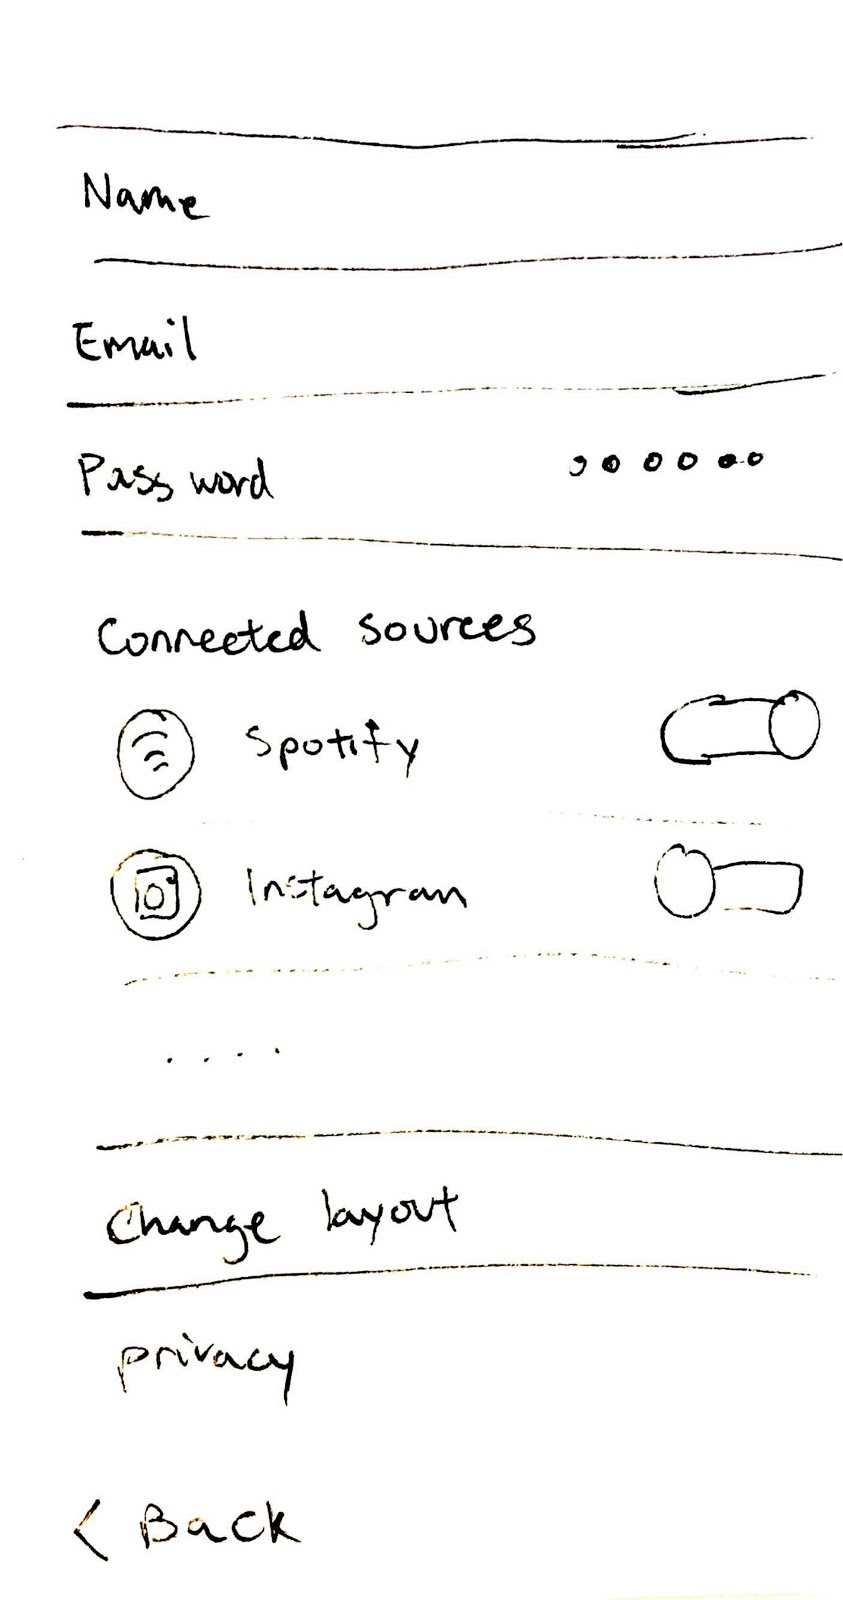 Name
Email
Password
Connected sources
Spotify
Instagram
. . . .
Change layout
privacy
< Back